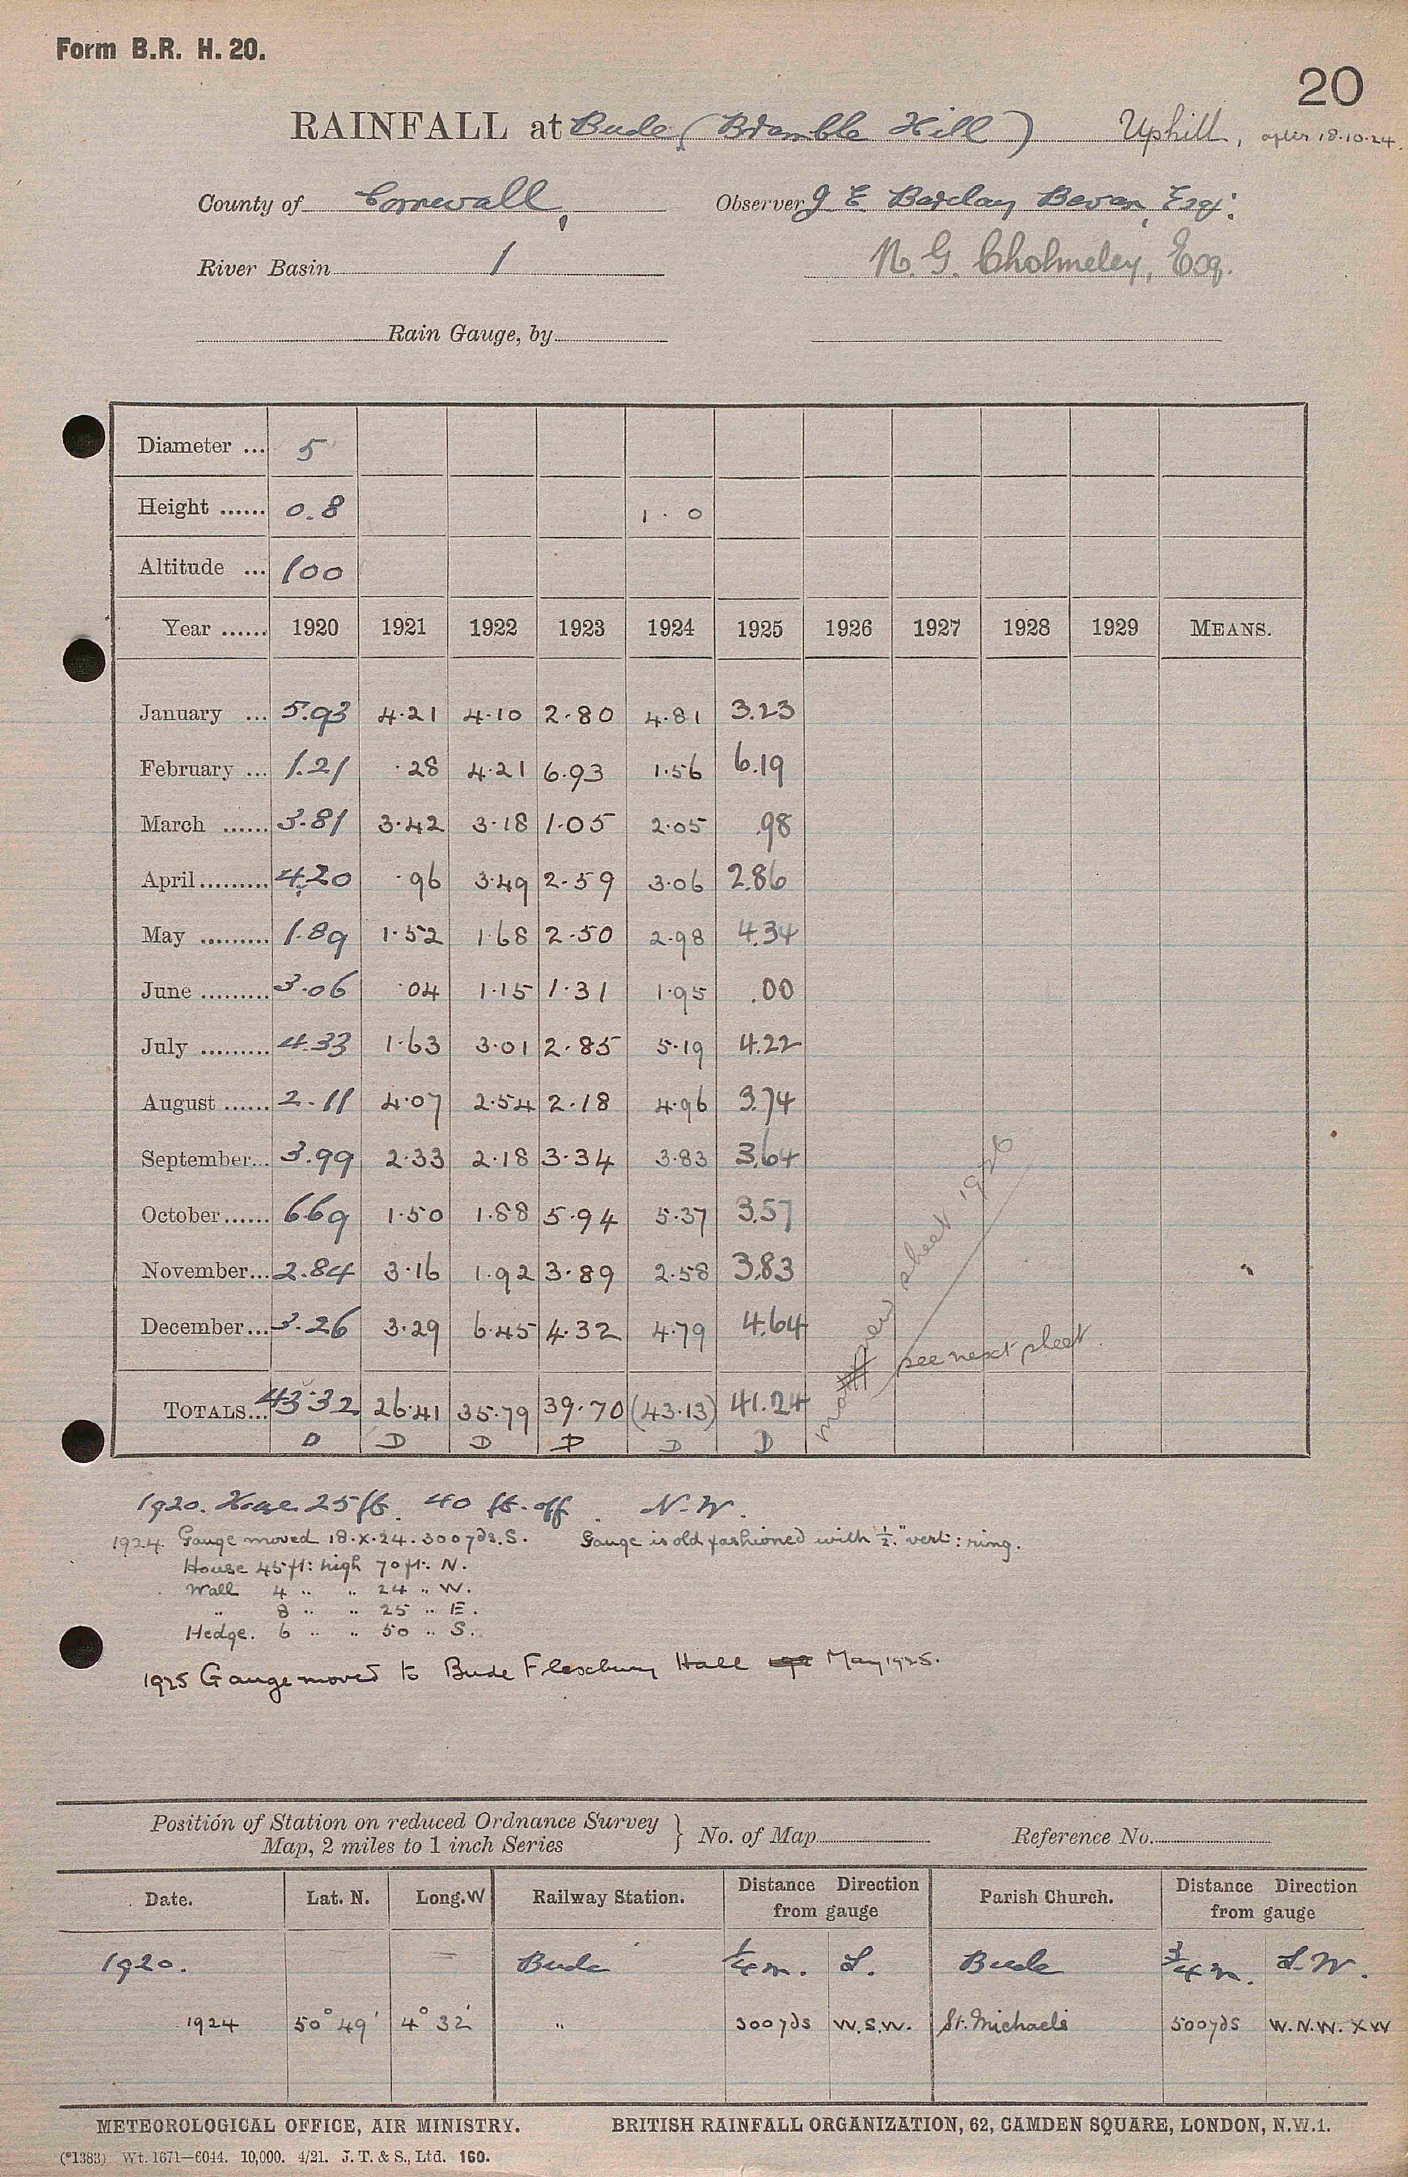 Form B.R. H. 20.
20
RAINFALL at Bude (Bramble Hill) Uphill, after 18.10.24.
County of Cornwall, Observer J E Barclay Bevan, Esq:
River Basin 1 N. G. Cholmeley, Esq.
Rain Gauge, by
Diameter ... 5
Height ...... 0.8 1.0
Altitude ... 100
Year ...... 1920 1921 1922 1923 1924 1925 1926 1927 1928 1929 MEANS.
January ... 5.93 4.21 4.10 2.80 4.81 3.23
February ... 1.21 .28 4.21 6.93 1.56 6.19
March ...... 3.81 3.42 3.18 1.05 2.05 .98
April......... 4.20 .96 3.49 2.59 3.06 2.86
May ......... 1.89 1.52 1.68 2.50 2.98 4.34
June ......... 3.06 .04 1.15 1.31 1.95 .00
July ......... 4.33 1.63 3.01 2.85 5.19 4.22
August ...... 2.11 4.07 2.54 2.18 4.96 3.74
September... 3.99 2.33 2.18 3.34 3.83 3.64
October...... 6.69 1.50 1.88 5.94 5.37 3.57
November... 2.84 3.16 1.92 3.89 2.58 3.83
December... 3.26 3.29 6.45 4.32 4.79 4.64
TOTALS... 43.32 26.41 35.79 39.70 (43.13) 41.24
D D D D D D
new sheet 1926
see next sheet.
1920. House 25 ft. 40 ft. off. N.W.
1924. Gauge moved 18.X.24. 300 yds. S. Gauge is old fashioned with ½" vert: ring.
House 45 ft: high 70 ft. N.
Wall 4 " " 24 " W.
" 8 " " 25 " E.
Hedge. 6 " " 50 " S.
1925 Gauge moved to Bude Flexbury Hall May 1925.
Position of Station on reduced Ordnance Survey
Map, 2 miles to 1 inch Series } No. of Map Reference No.
Date. Lat. N. Long. W Railway Station. Distance from gauge Direction Parish Church. Distance from gauge Direction
1920. — — Bude ¼ m. S. Bude ¾ m. S.W.
1924 50° 49' 4° 32' " 300 yds W.S.W. St. Michaels 500 yds W.N.W. X W
METEOROLOGICAL OFFICE, AIR MINISTRY. BRITISH RAINFALL ORGANIZATION, 62, CAMDEN SQUARE, LONDON, N.W.1.
(*1383) Wt. 1671—6044. 10,000. 4/21. J. T. & S., Ltd. 160.